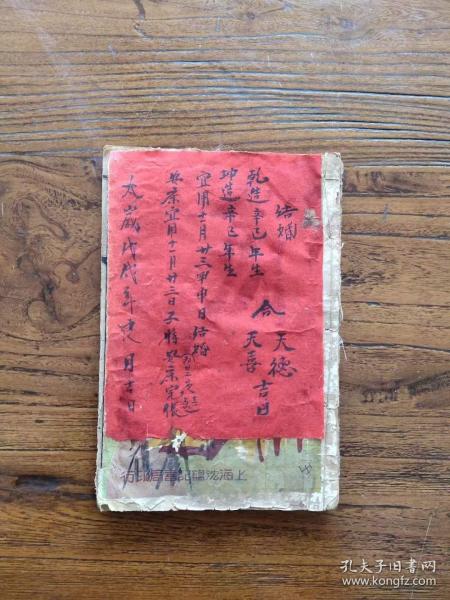 结婚
乾造辛巳年生
坤造辛巳年生
合 天德
天喜 吉日
宜用十一月廿三甲申日结婚
安床宜用十一月廿三日子時安床完帳
太歲戊戌年 月吉日
上海沈鶴記書局印行
孔夫子旧书网
www.kongfz.com